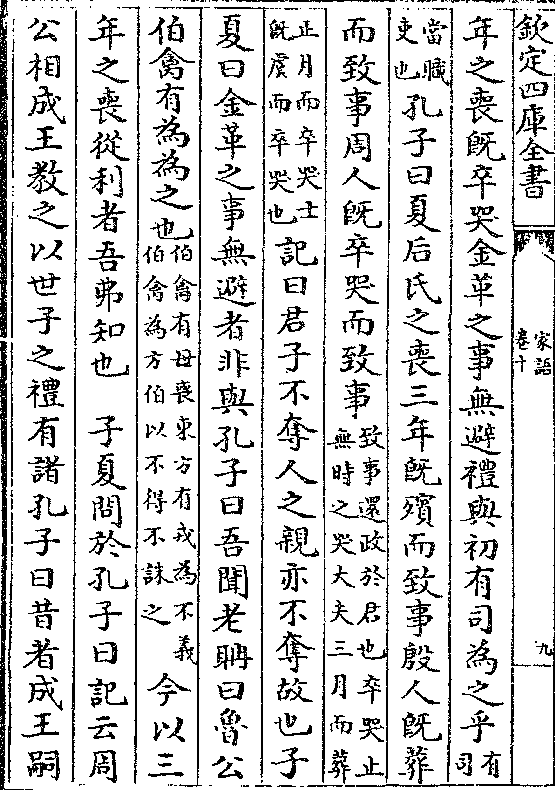 欽定四庫全書
家語
卷十
九
年之喪既卒哭金革之事無避禮與初有司為之乎有司
當職吏也孔子曰夏后氏之喪三年既殯而致事殷人既葬
而致事周人既卒哭而致事致事還政於君也卒哭止無時之哭大夫三月而葬
五月而卒哭士既虞而卒哭也記曰君子不奪人之親亦不奪故也子
夏曰金革之事無避者非與孔子曰吾聞老聃曰魯公
伯禽有為為之也伯禽有母喪東方有戎為不義伯禽為方伯以不得不誅之今以三
年之喪從利者吾弗知也　子夏問於孔子曰記云周
公相成王教之以世子之禮有諸孔子曰昔者成王嗣